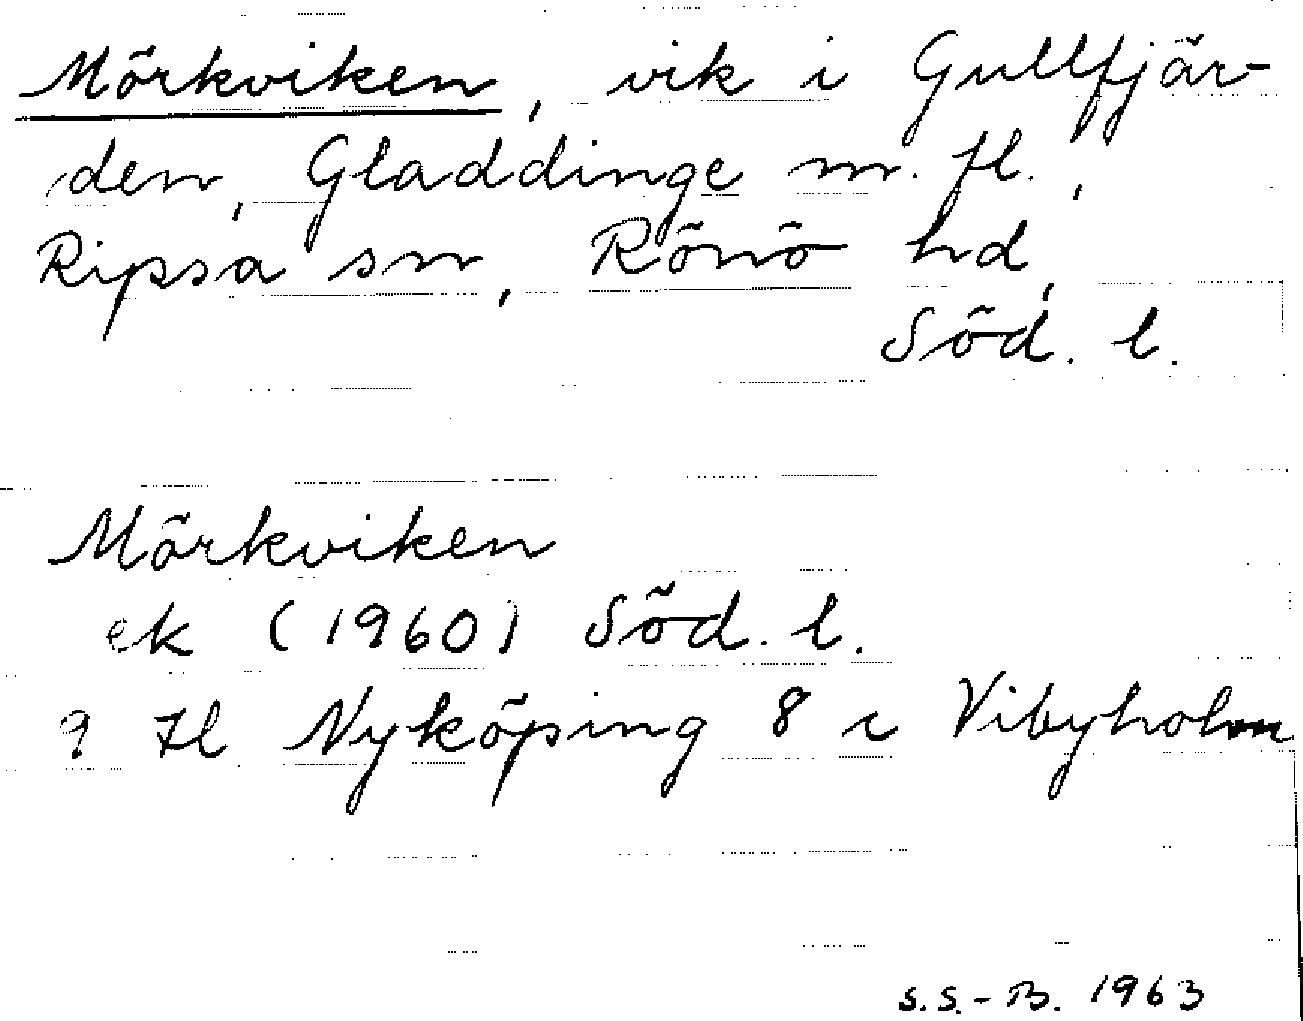 Mörkviken, vik i Gullfjär-
den, Gladdinge m. fl.,
Ripsa sn, Rönö hd,
Söd. l.
Mörkviken
ek (1960) Söd. l.
Nyköping 8 c Vibyholm
S.S.-B. 1963